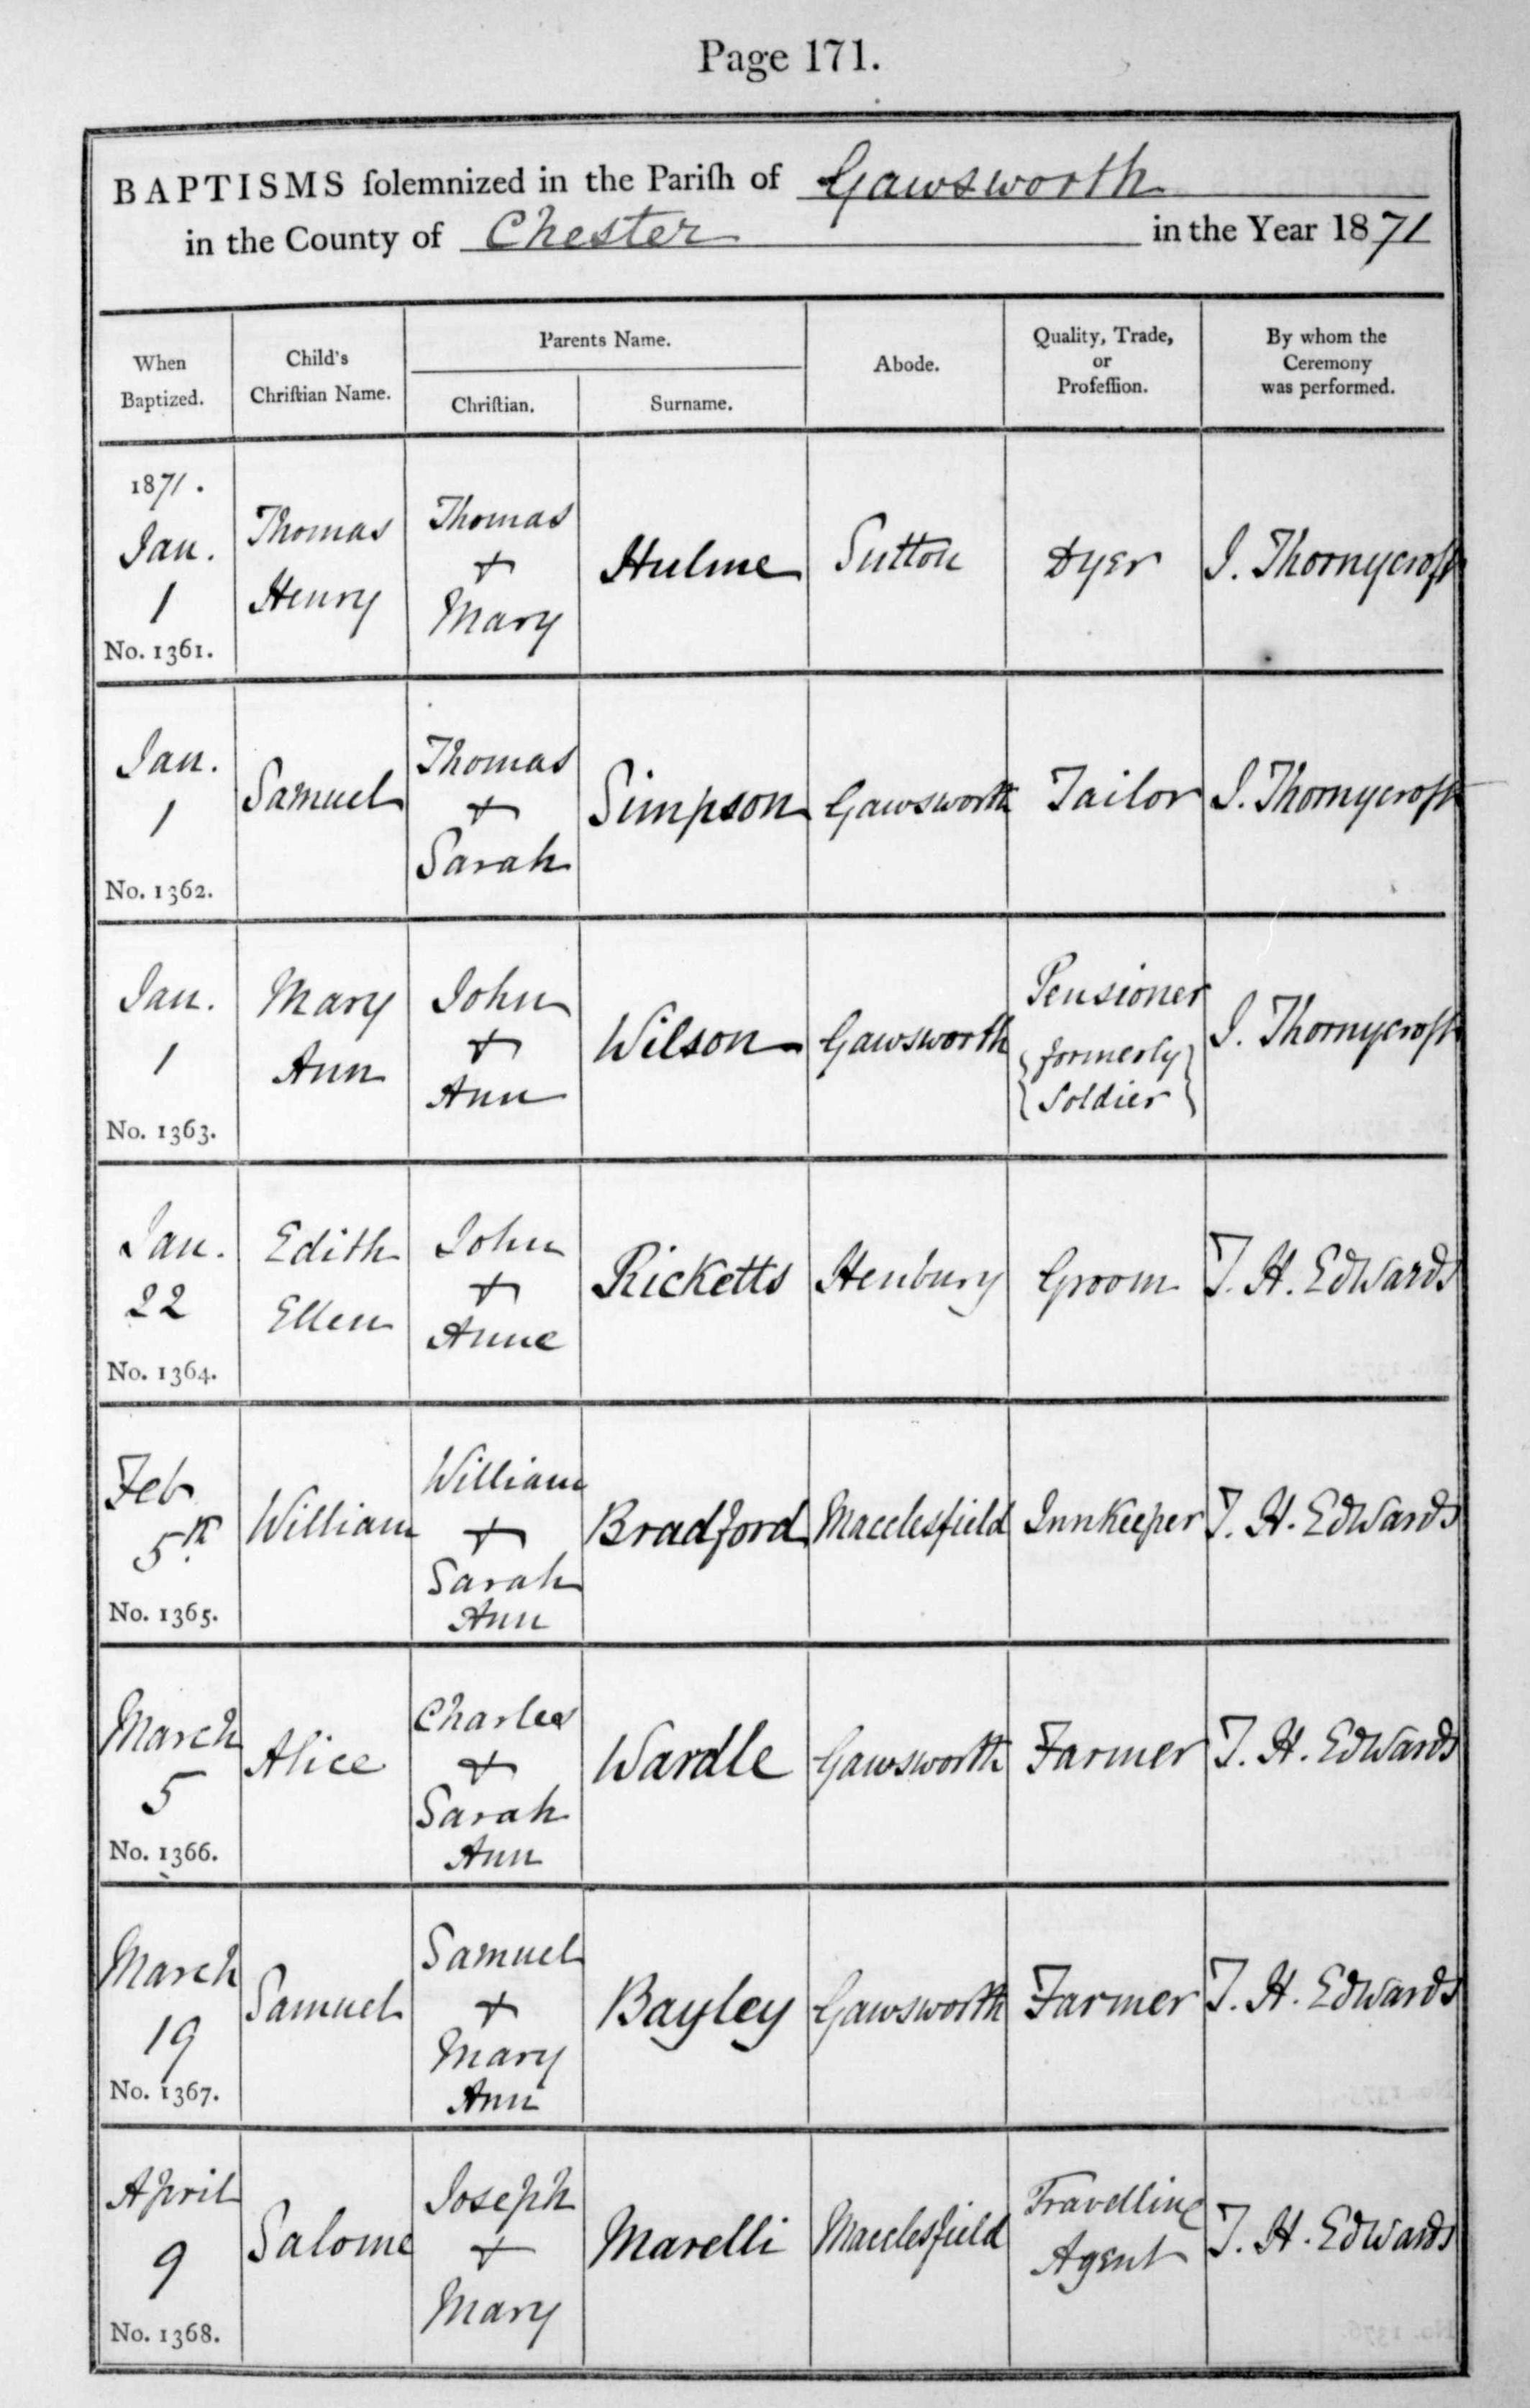 Page 171.
BAPTISMS solemnized in the Parish of Gawsworth
in the County of Chester in the Year 1871
When Baptized.
Child's Christian Name.
Parents Name.
Christian.
Surname.
Abode.
Quality, Trade, or Profession.
By whom the Ceremony was performed.
1871.
Jan.
1
No. 1361.
Thomas
Henry
Thomas
+
Mary
Hulme
Sutton
Dyer
I. Thornycroft
Jan.
1
No. 1362.
Samuel
Thomas
+
Sarah
Simpson
Gawsworth
Tailor
I. Thornycroft
Jan.
1
No. 1363.
Mary
Ann
John
+
Ann
Wilson
Gawsworth
Pensioner
{formerly}
{Soldier}
I. Thornycroft
Jan.
22
No. 1364.
Edith
Ellen
John
+
Anne
Ricketts
Henbury
Groom
T. H. Edwards
Feb
5th
No. 1365.
William
William
+
Sarah
Ann
Bradford
Macclesfield
Innkeeper
T. H. Edwards
March
5
No. 1366.
Alice
Charles
+
Sarah
Ann
Wardle
Gawsworth
Farmer
T. H. Edwards
March
19
No. 1367.
Samuel
Samuel
+
Mary
Ann
Bayley
Gawsworth
Farmer
T. H. Edwards
April
9
No. 1368.
Salome
Joseph
+
Mary
Marelli
Macclesfield
Travelling
Agent
T. H. Edwards